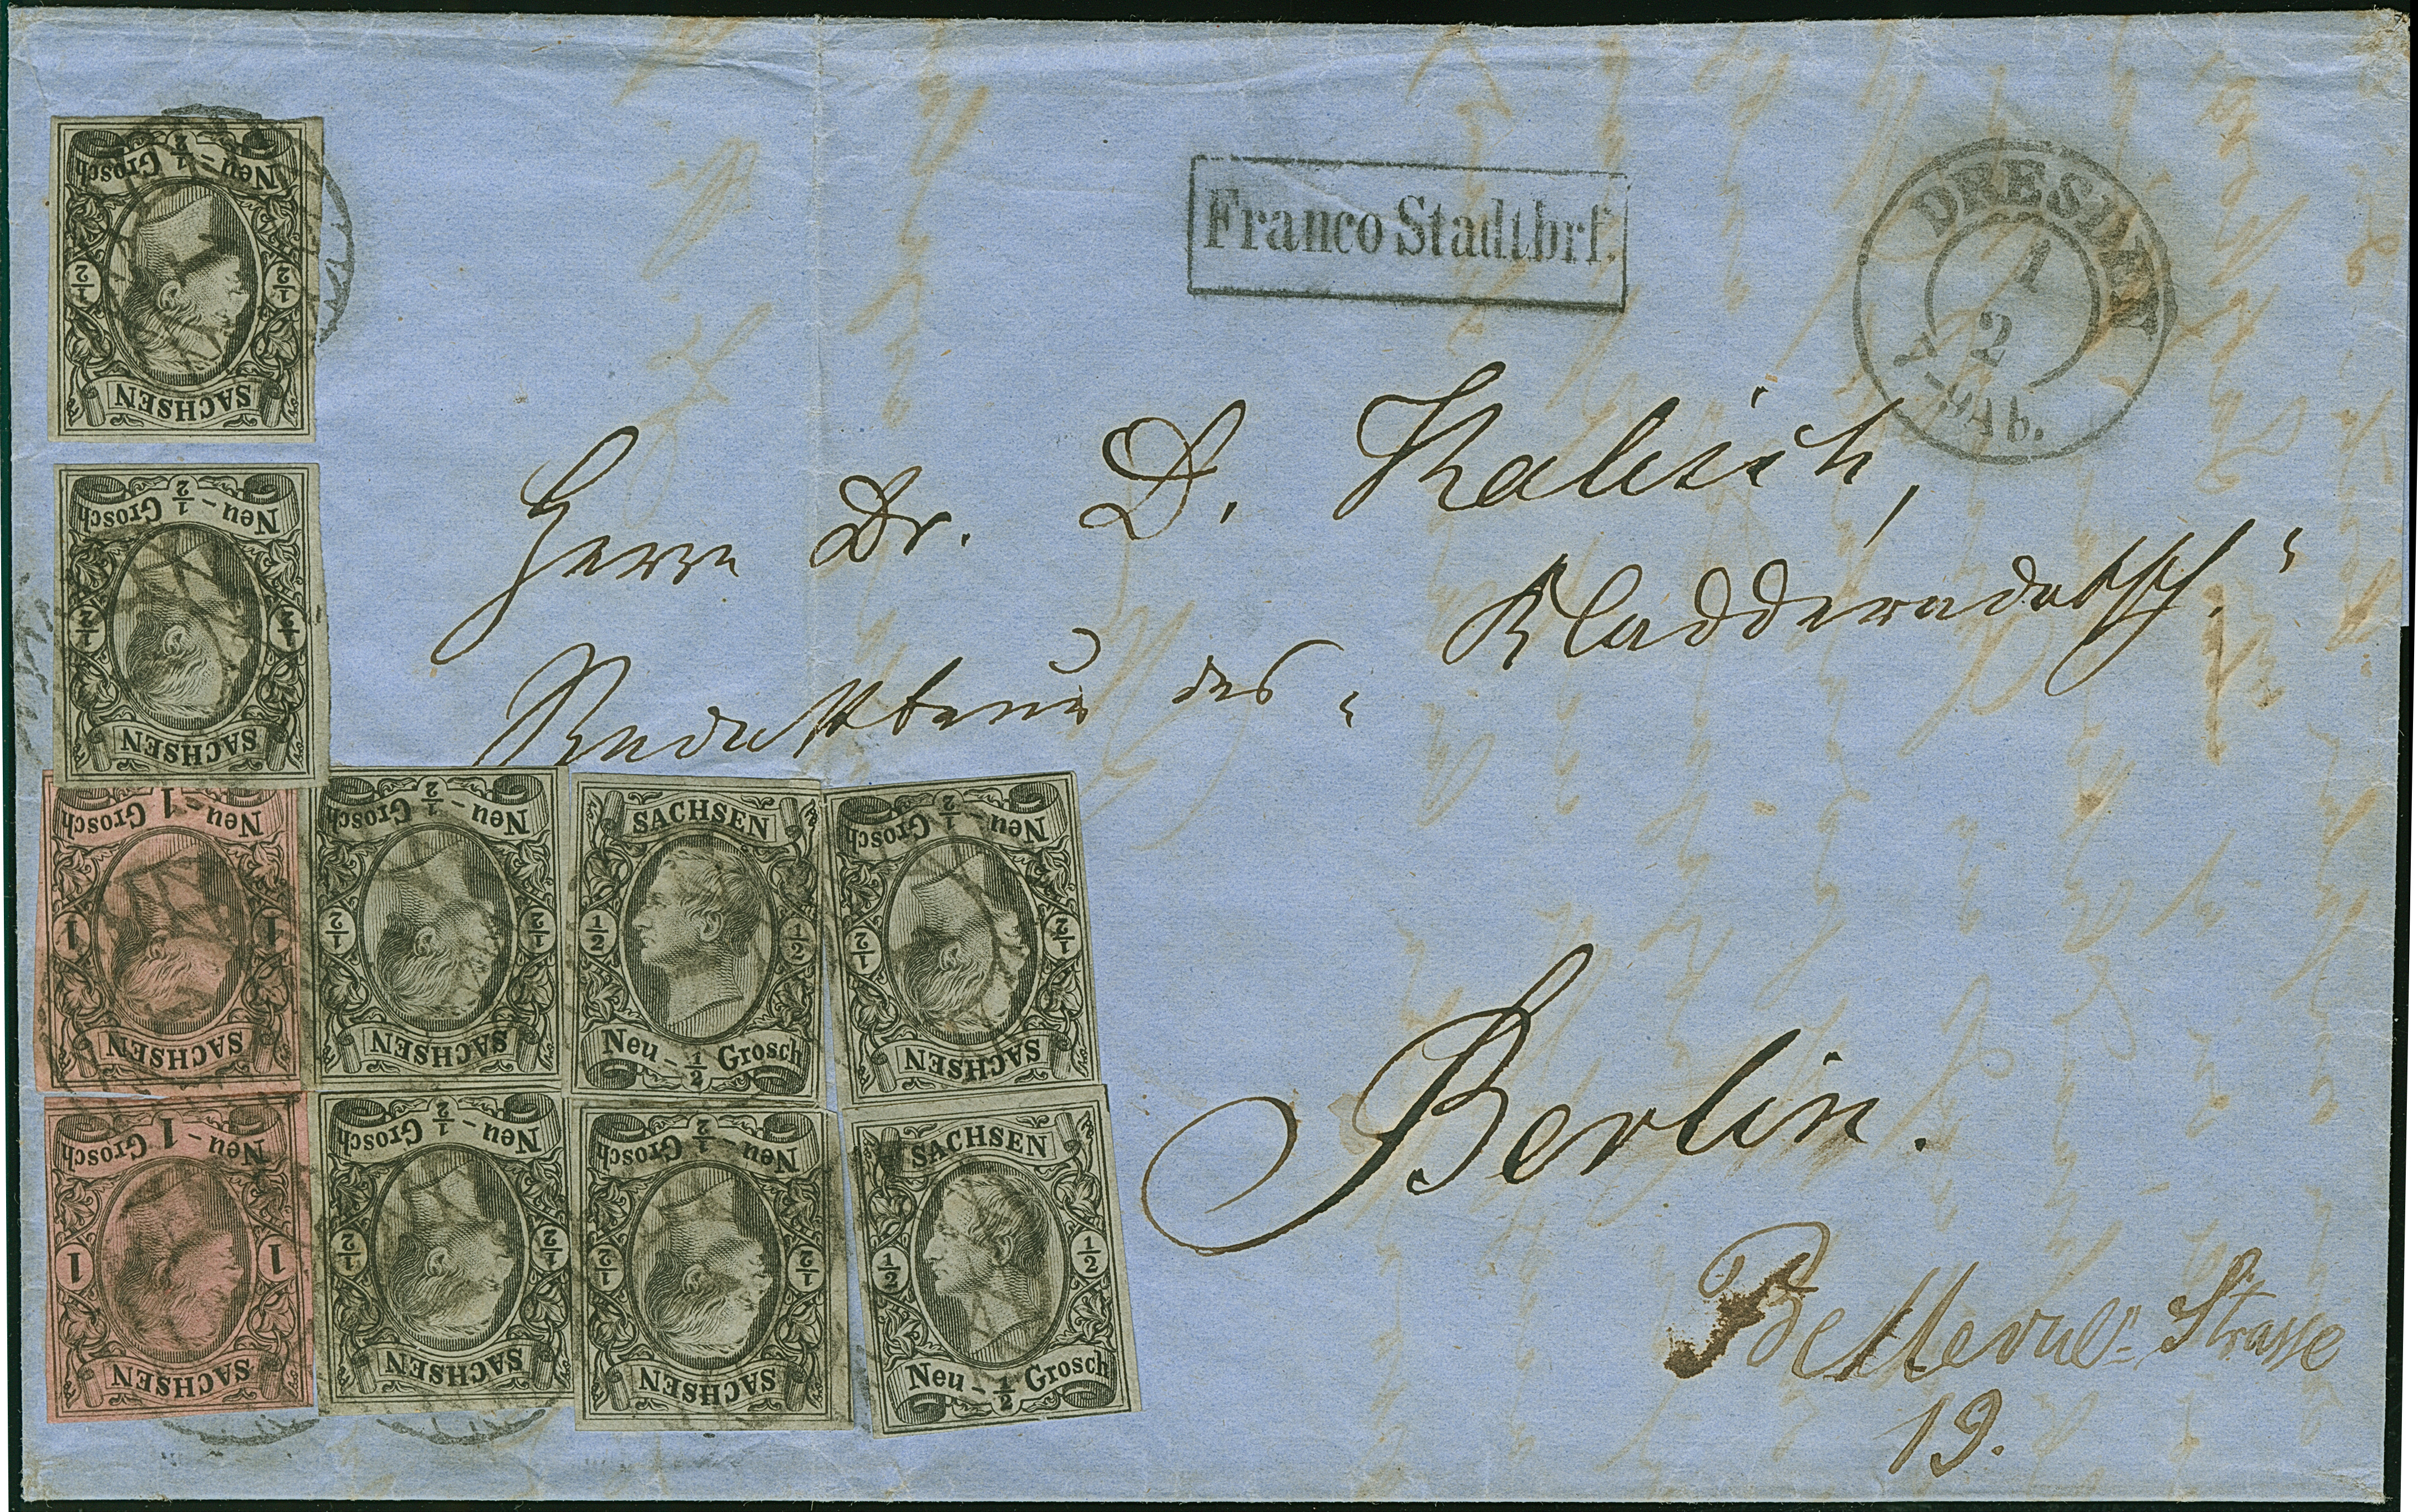 Franco Stadtbrf.
DRESDEN
1
2
7-9 Ab.
Herrn Dr. D. Kalisch,
Redakteur des „Kladderadatsch.“
Berlin.
Bellevue-Strasse
19.
Neu - ½ Grosch
½ ½
SACHSEN
Neu - ½ Grosch
½ ½
SACHSEN
Neu - 1 Grosch
1 1
SACHSEN
Neu - ½ Grosch
½ ½
SACHSEN
SACHSEN
½ ½
Neu - ½ Grosch
Neu - ½ Grosch
½ ½
SACHSEN
Neu - 1 Grosch
1 1
SACHSEN
Neu - ½ Grosch
½ ½
SACHSEN
Neu - ½ Grosch
½ ½
SACHSEN
SACHSEN
½ ½
Neu - ½ Grosch